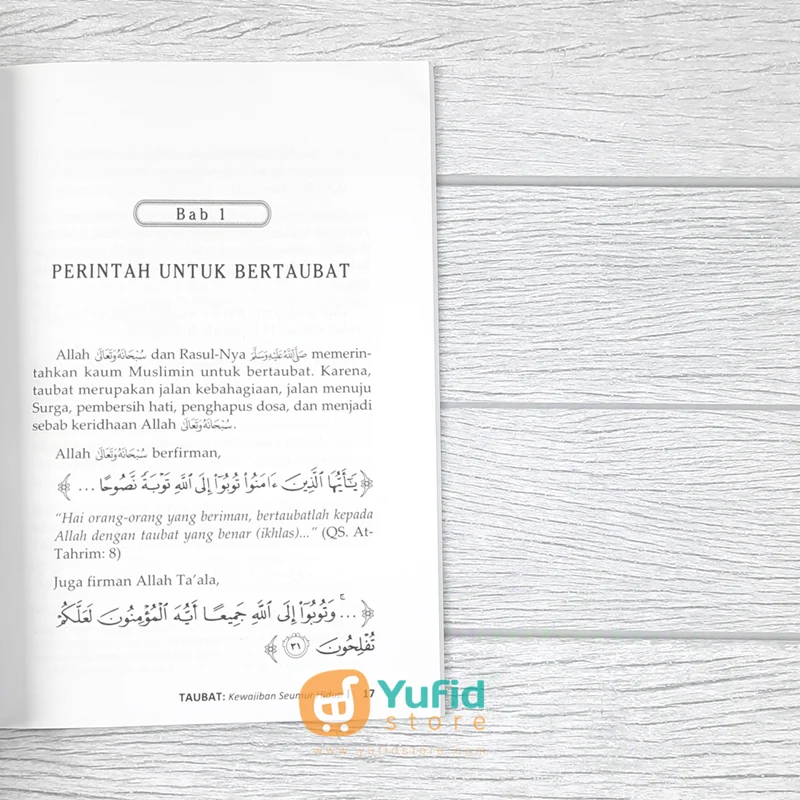 Bab 1
PERINTAH UNTUK BERTAUBAT
Allah سُبْحَانَهُ وَتَعَالَى dan Rasul-Nya صَلَّى اللَّهُ عَلَيْهِ وَسَلَّمَ memerin-
tahkan kaum Muslimin untuk bertaubat. Karena,
taubat merupakan jalan kebahagiaan, jalan menuju
Surga, pembersih hati, penghapus dosa, dan menjadi
sebab keridhaan Allah سُبْحَانَهُ وَتَعَالَى.
Allah سُبْحَانَهُ وَتَعَالَى berfirman,
﴿ يَٰٓأَيُّهَا ٱلَّذِينَ ءَامَنُوا۟ تُوبُوٓا۟ إِلَى ٱللَّهِ تَوْبَةً نَّصُوحًا ... ﴾
“Hai orang-orang yang beriman, bertaubatlah kepada
Allah dengan taubat yang benar (ikhlas)...” (QS. At-
Tahrim: 8)
Juga firman Allah Ta’ala,
﴿ ... ۚ وَتُوبُوٓا۟ إِلَى ٱللَّهِ جَمِيعًا أَيُّهَ ٱلْمُؤْمِنُونَ لَعَلَّكُمْ
تُفْلِحُونَ ٣١ ﴾
TAUBAT: Kewajiban Seumur Hidup | 17
Yufid
store
www.yufidstore.com